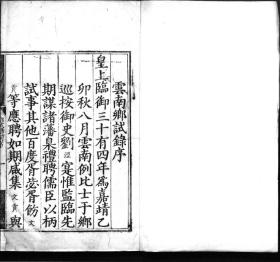 雲南鄉試錄序
皇上臨御三十有四年為嘉靖乙
卯秋八月雲南例比士于鄉
巡按御史劉 寔惟監臨先
期謀諸藩臬禮聘儒臣以柄
試事其他百度胥毖胥飭文
貴等應聘如期咸集文貴與